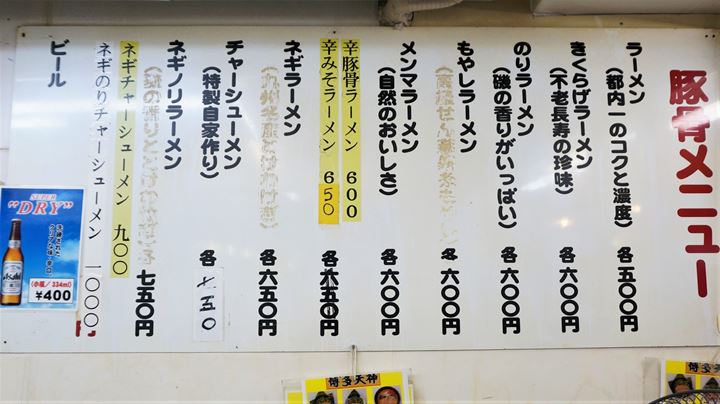 豚骨メニュー
ラーメン
(都内一のコクと濃度)
各五〇〇円
きくらげラーメン
(不老長寿の珍味)
各六〇〇円
のりラーメン
(磯の香りがいっぱい)
各六〇〇円
もやしラーメン
各六〇〇円
メンマラーメン
(自然のおいしさ)
各六〇〇円
辛豚骨ラーメン 600
辛みそラーメン 650
各六五〇円
ネギラーメン
各六五〇円
チャーシューメン
(特製自家作り)
各七五〇
ネギノリラーメン
七五〇円
ネギチャーシューメン 九〇〇
ネギのりチャーシューメン 一〇〇〇
円
ビール
SUPER
"DRY"
洗練された
クリアな味、辛口。
Asahi
(小瓶/334ml)
¥400
博多天神